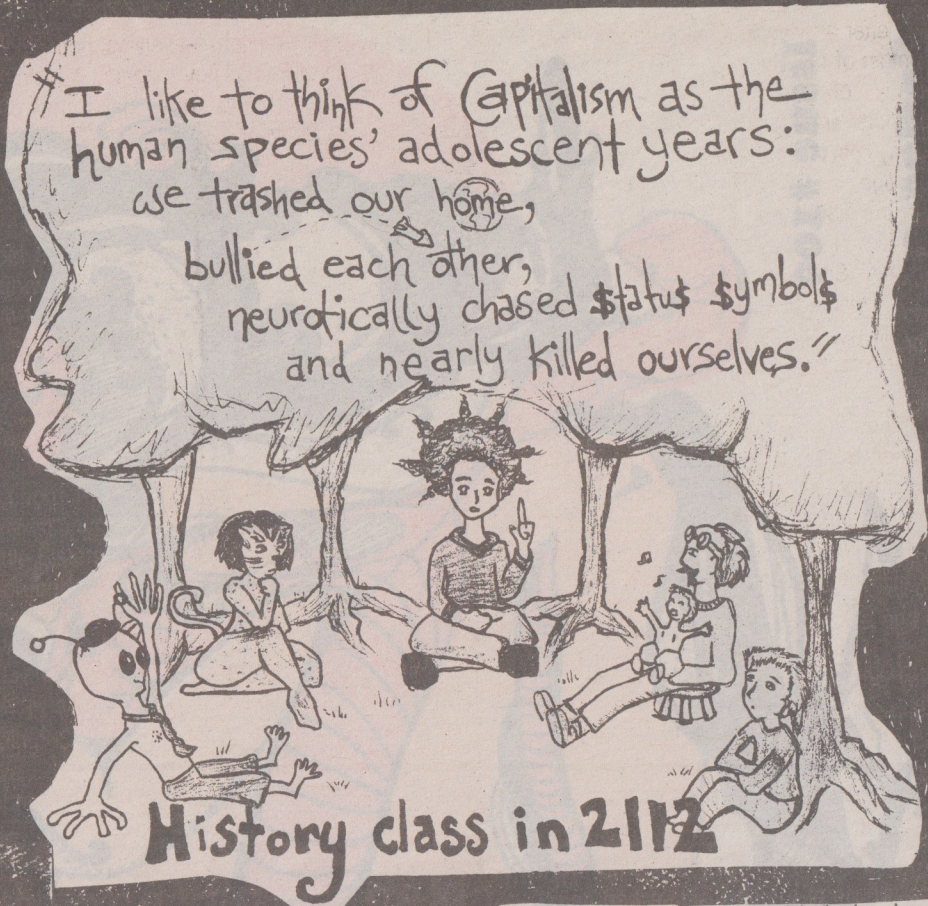 "I like to think of Capitalism as the
human species' adolescent years:
we trashed our home,
bullied each other,
neurotically chased $tatu$ $ymbol$
and nearly killed ourselves."
History class in 2112